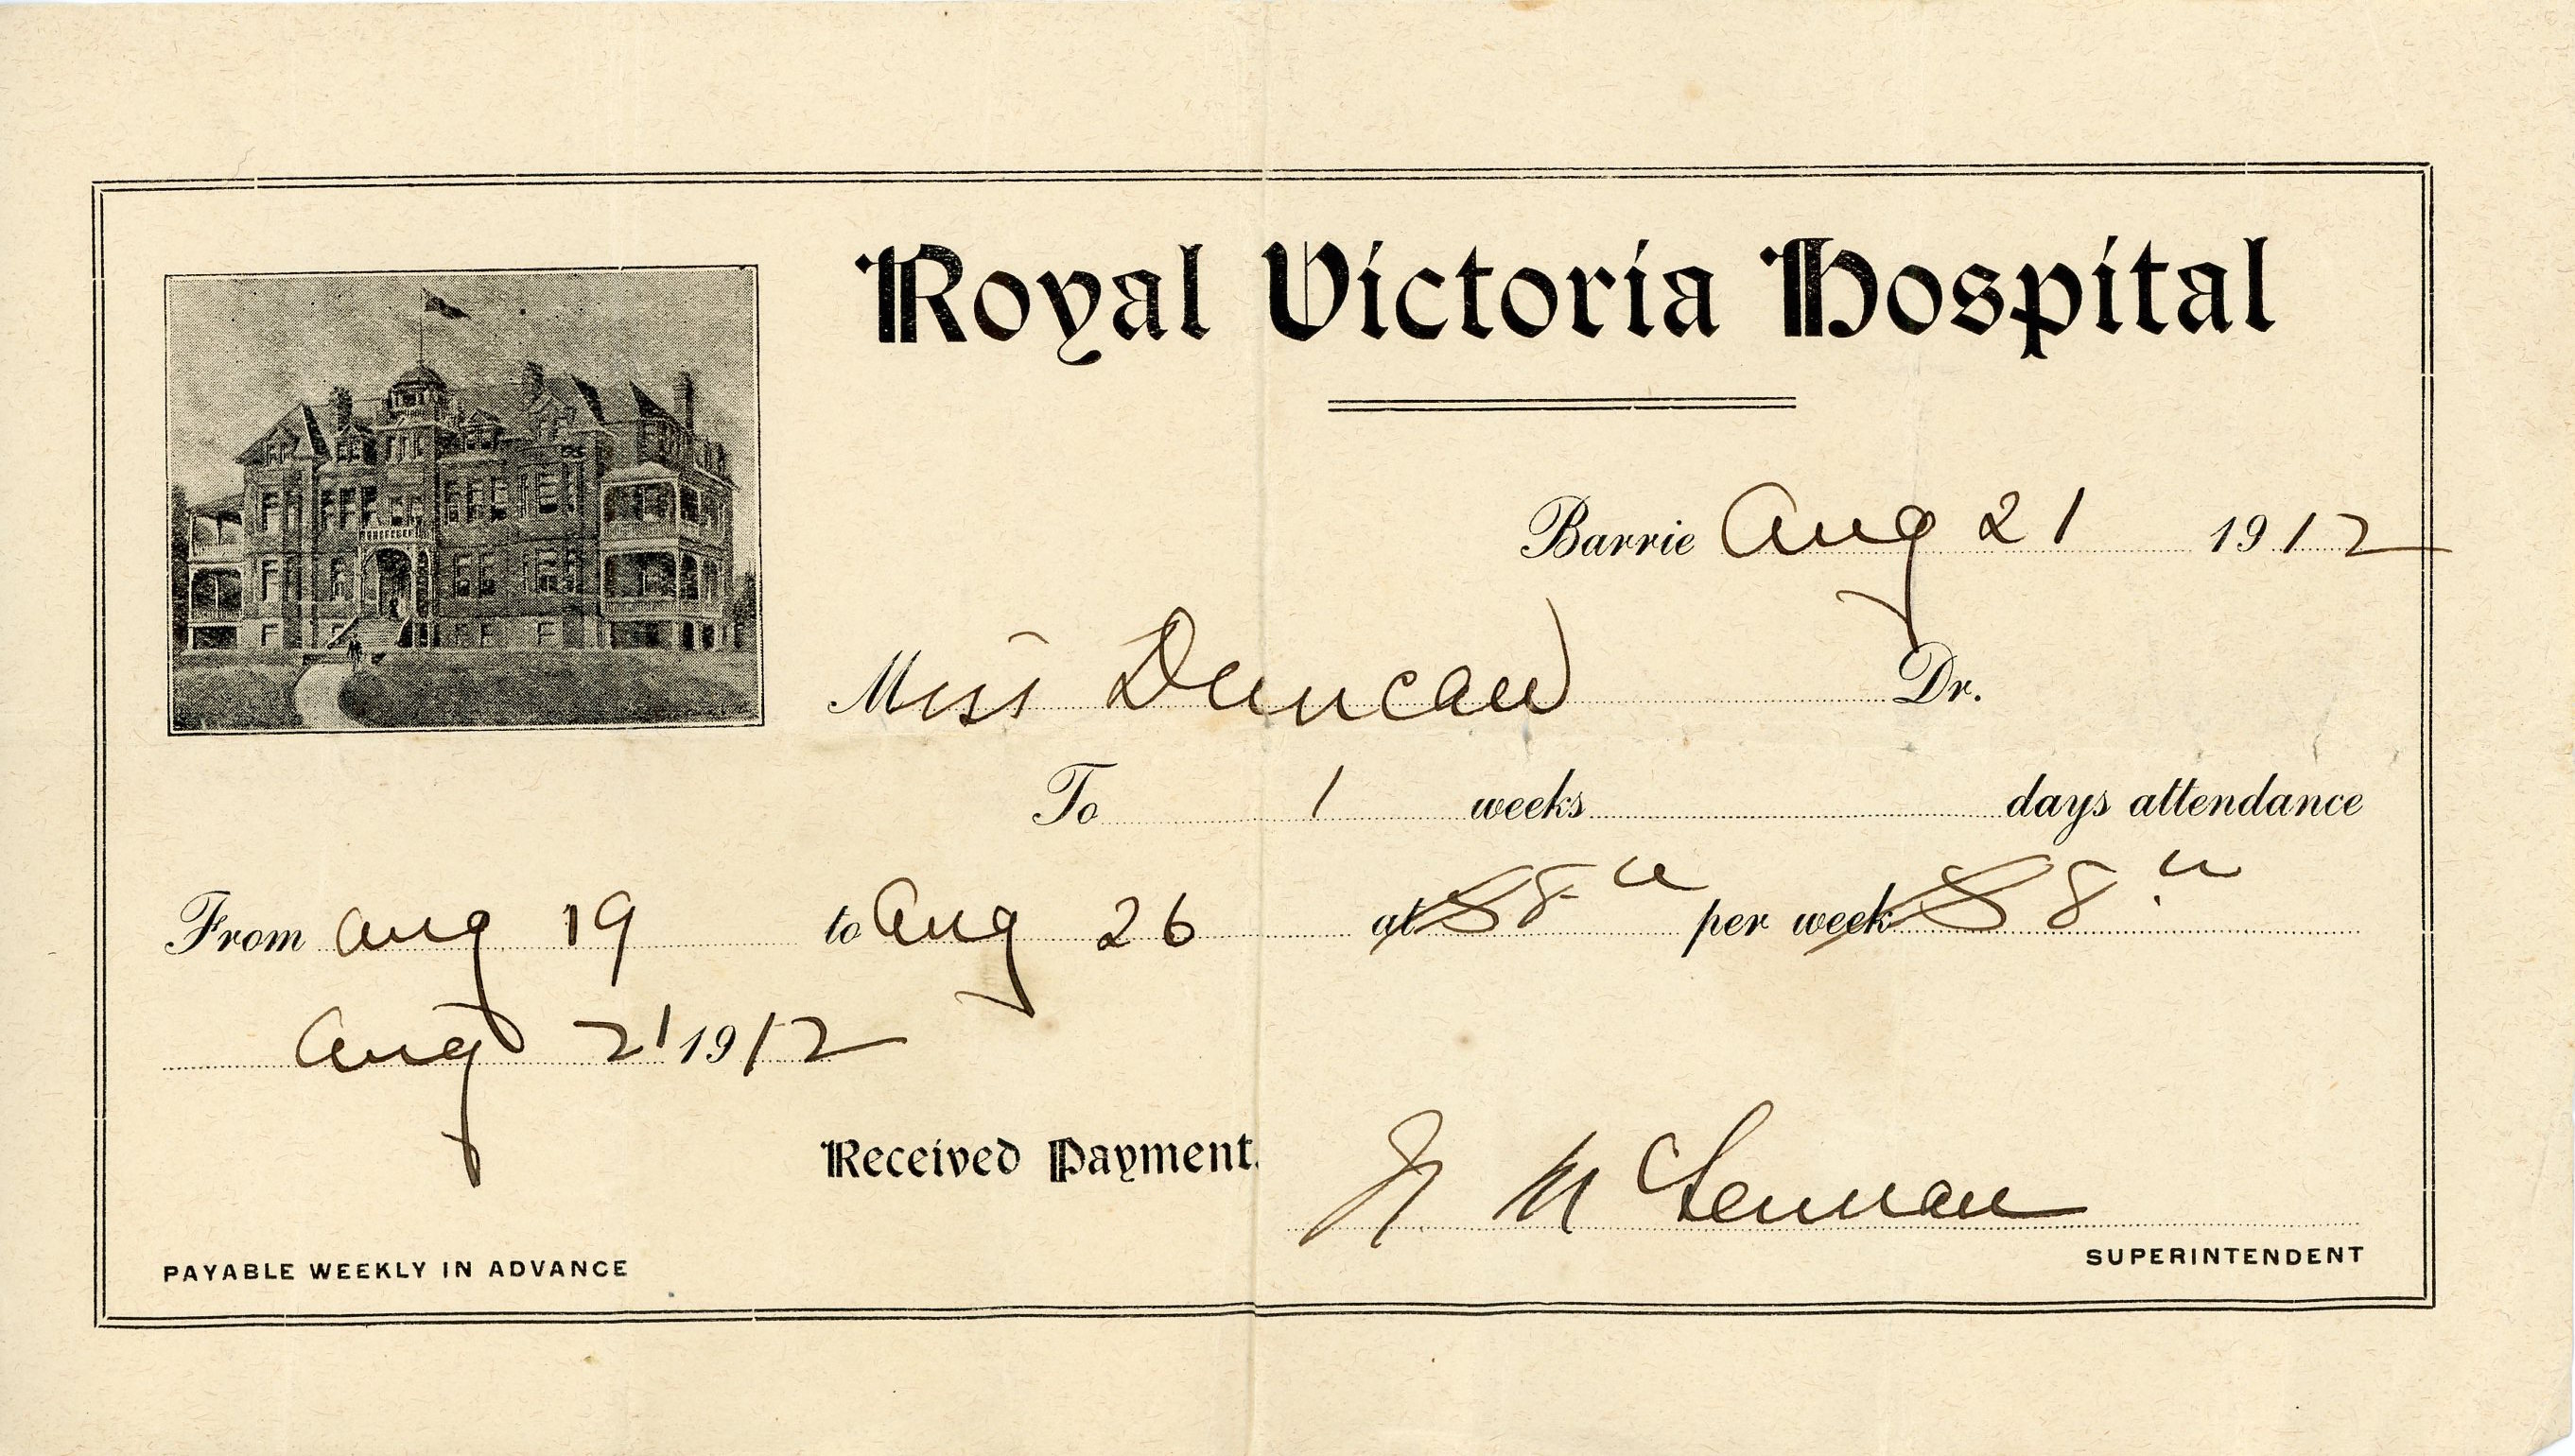 Royal Victoria Hospital
Barrie Aug 21 1912
Miss Duncan Dr.
To 1 weeks days attendance
From Aug 19 to Aug 26 at $8.00 per week $8.00
Aug 21 1912
Received Payment.
McLennan
SUPERINTENDENT
PAYABLE WEEKLY IN ADVANCE